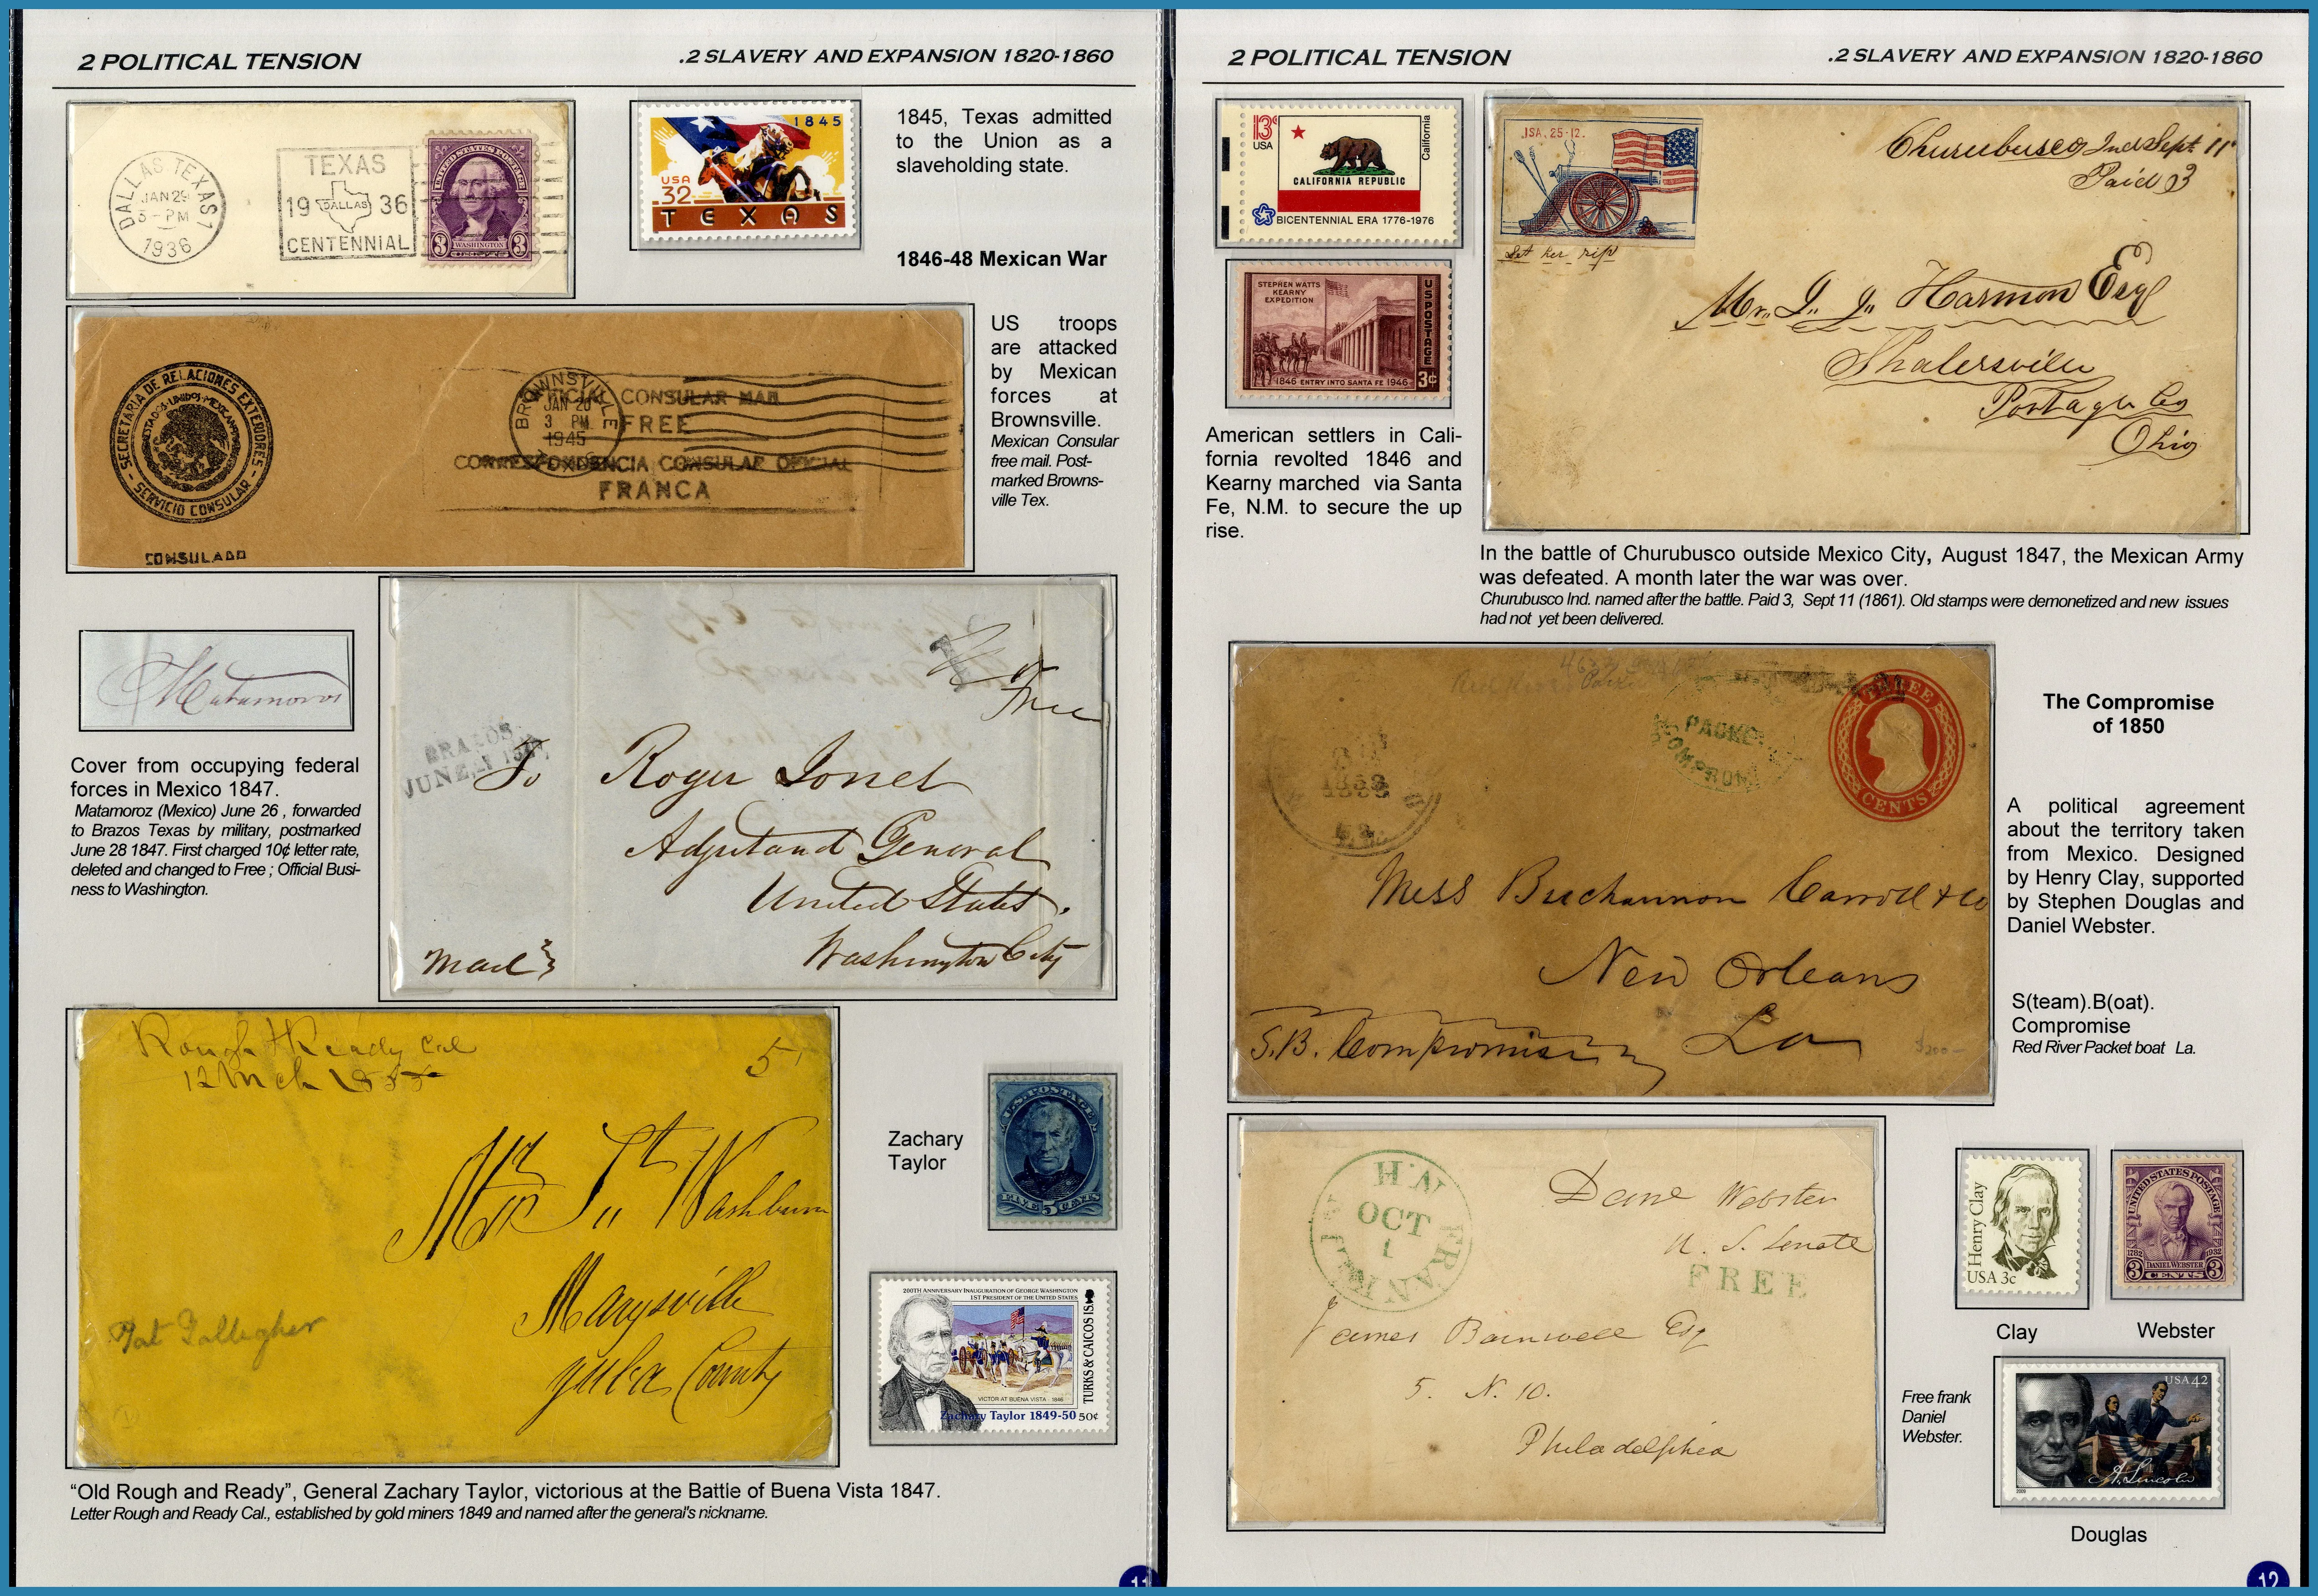 2 POLITICAL TENSION
.2 SLAVERY AND EXPANSION 1820-1860
DALLAS TEXAS 1
JAN 29
5-PM
1936
TEXAS
19 DALLAS 36
CENTENNIAL
UNITED STATES POSTAGE
3 WASHINGTON 3
1845
USA
32
TEXAS
1845, Texas admitted
to the Union as a
slaveholding state.
1846-48 Mexican War
SECRETARIA DE RELACIONES EXTERIORES
ESTADOS UNIDOS MEXICANOS
- SERVICIO CONSULAR -
CONSULADO
BROWNSVILLE
JAN 20
3 PM
1945
OFFICIAL CONSULAR MAIL
FREE
CORRESPONDENCIA CONSULAR OFICIAL
FRANCA
US troops
are attacked
by Mexican
forces at
Brownsville.
Mexican Consular
free mail. Post-
marked Browns-
ville Tex.
Matamoros
Cover from occupying federal
forces in Mexico 1847.
Matamoroz (Mexico) June 26 , forwarded
to Brazos Texas by military, postmarked
June 28 1847. First charged 10¢ letter rate,
deleted and changed to Free ; Official Busi-
ness to Washington.
Free
BRAZOS
To Roger Jones
Adjutand General
United States.
Washington City
Mail
Rough & Ready Cal
12 Mch 1855
5
Washburn
Marysville
Yuba County
Pat Gallegher
Zachary
Taylor
U.S. POSTAGE
FIVE 5 CENTS
200TH ANNIVERSARY INAUGURATION OF GEORGE WASHINGTON
1ST PRESIDENT OF THE UNITED STATES
TURKS & CAICOS IS.
VICTOR AT BUENA VISTA - 1846
Zachary Taylor 1849-50 50¢
“Old Rough and Ready”, General Zachary Taylor, victorious at the Battle of Buena Vista 1847.
Letter Rough and Ready Cal., established by gold miners 1849 and named after the general's nickname.
11
2 POLITICAL TENSION
.2 SLAVERY AND EXPANSION 1820-1860
13c
USA
California
CALIFORNIA REPUBLIC
BICENTENNIAL ERA 1776-1976
STEPHEN WATTS
KEARNY
EXPEDITION
US POSTAGE
1846 ENTRY INTO SANTA FE 1946
3¢
American settlers in Cali-
fornia revolted 1846 and
Kearny marched via Santa
Fe, N.M. to secure the up
rise.
Churubusco Ind Sept 11
Paid 3
Let her rip
Mr. J. J. Harmon Esq
Shalersville
Portage Co
Ohio
In the battle of Churubusco outside Mexico City, August 1847, the Mexican Army
was defeated. A month later the war was over.
Churubusco Ind. named after the battle. Paid 3, Sept 11 (1861). Old stamps were demonetized and new issues
had not yet been delivered.
PACKET
THREE
CENTS
Mess Buchannon Carroll & Co
New Orleans
La
S.B. Compromise
The Compromise
of 1850
A political agreement
about the territory taken
from Mexico. Designed
by Henry Clay, supported
by Stephen Douglas and
Daniel Webster.
S(team).B(oat).
Compromise
Red River Packet boat La.
OCT
1
Danl Webster
U. S. Senate
FREE
James Barnwell Esq
5. N. 10.
Philadelphia
Henry Clay
USA 3c
Clay
UNITED STATES POSTAGE
1782 1932
DANIEL WEBSTER
3 CENTS 3
Webster
Free frank
Daniel
Webster.
USA 42
A. Lincoln
2009
Douglas
12